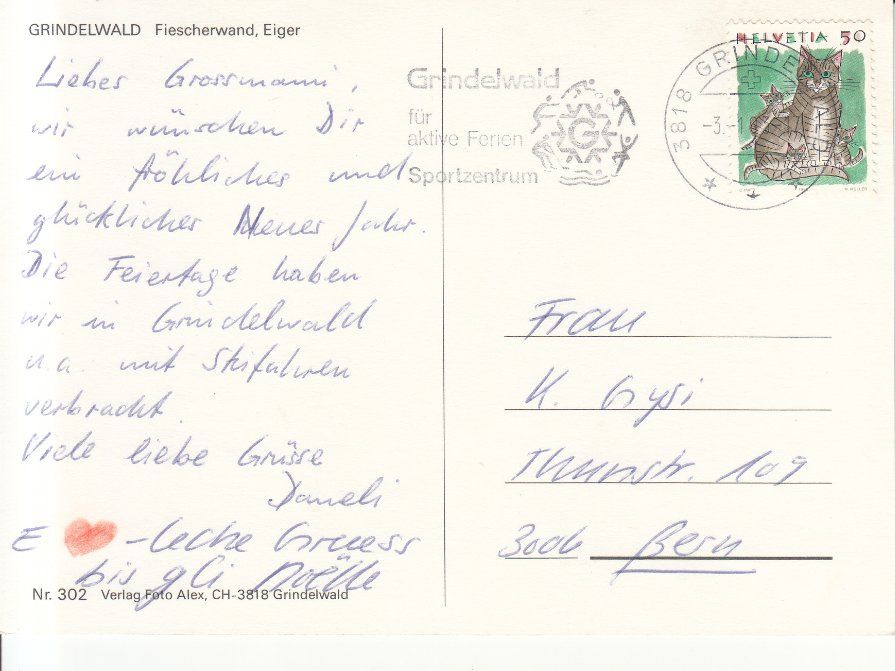 GRINDELWALD Fiescherwand, Eiger
Liebes Grossmami,
wir wünschen Dir
ein fröhliches und
glückliches Neues Jahr.
Die Feiertage haben
wir in Grindelwald
u.a. mit Skifahren
verbracht.
Viele liebe Grüsse
Danieli
E ❤ -leche Gruess
bis gli Noëlle
Nr. 302 Verlag Foto Alex, CH-3818 Grindelwald
Grindelwald
für
aktive Ferien
Sportzentrum
G
3818 GRINDE
-3.-1
HELVETIA 50
Frau
K. Gysi
Thunstr. 109
3006 Bern